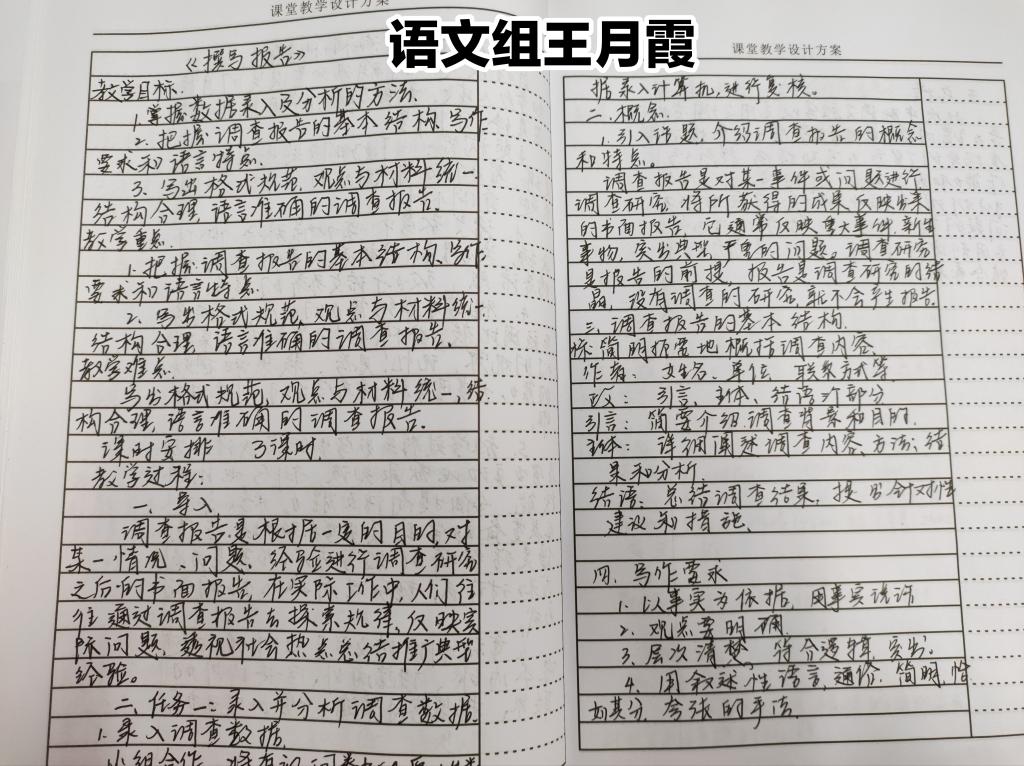 课堂教学设计方案
语文组王月霞
《撰写报告》
教学目标.
1.掌握数据录入及分析的方法.
2.把握调查报告的基本结构、写作
要求和语言特点.
3.写出格式规范,观点与材料统一.
结构合理,语言准确的调查报告.
教学重点.
1.把握调查报告的基本结构、写作
要求和语言特点
2.写出格式规范,观点与材料统一.
结构合理,语言准确的调查报告.
教学难点.
写出格式规范,观点与材料统一,结
构合理,语言准确的调查报告.
课时安排 3课时.
教学过程:
一、导入
调查报告是根据一定的目的,对
某一情况、问题、经验进行调查研究
之后的书面报告,在实际工作中,人们往
往通过调查报告去探索规律,反映实
际问题,透视社会热点总结推广典型
经验。
二、任务一:录入并分析调查数据.
1.录入调查数据.
小组合作,将
课堂教学设计方案
据录入计算机,进行复核。
二.概念.
1.引入话题,介绍调查报告的概念
和特点。
调查报告是对某一事件或问题进行
调查研究,将所获得的成果反映出来
的书面报告,它通常反映重大事件,新生
事物,突出典型,严重的问题。调查研究
是报告的前提,报告是调查研究的结
晶,没有调查的研究,就不会产生报告.
三.调查报告的基本结构.
标简明扼要地概括调查内容
作者: 姓名、单位、联系方式等.
正文: 引言、主体、结语三个部分
引言: 简要介绍调查背景和目的.
主体: 详细阐述调查内容、方法、结
果和分析
结语: 总结调查结果,提出针对性
建议和措施.
四.写作要求
1.以事实为依据,用事实说话
2.观点要明确.
3.层次清楚,符合逻辑,突出
4.用叙述性语言,通俗,简明,恰
如其分,夸张的手法.